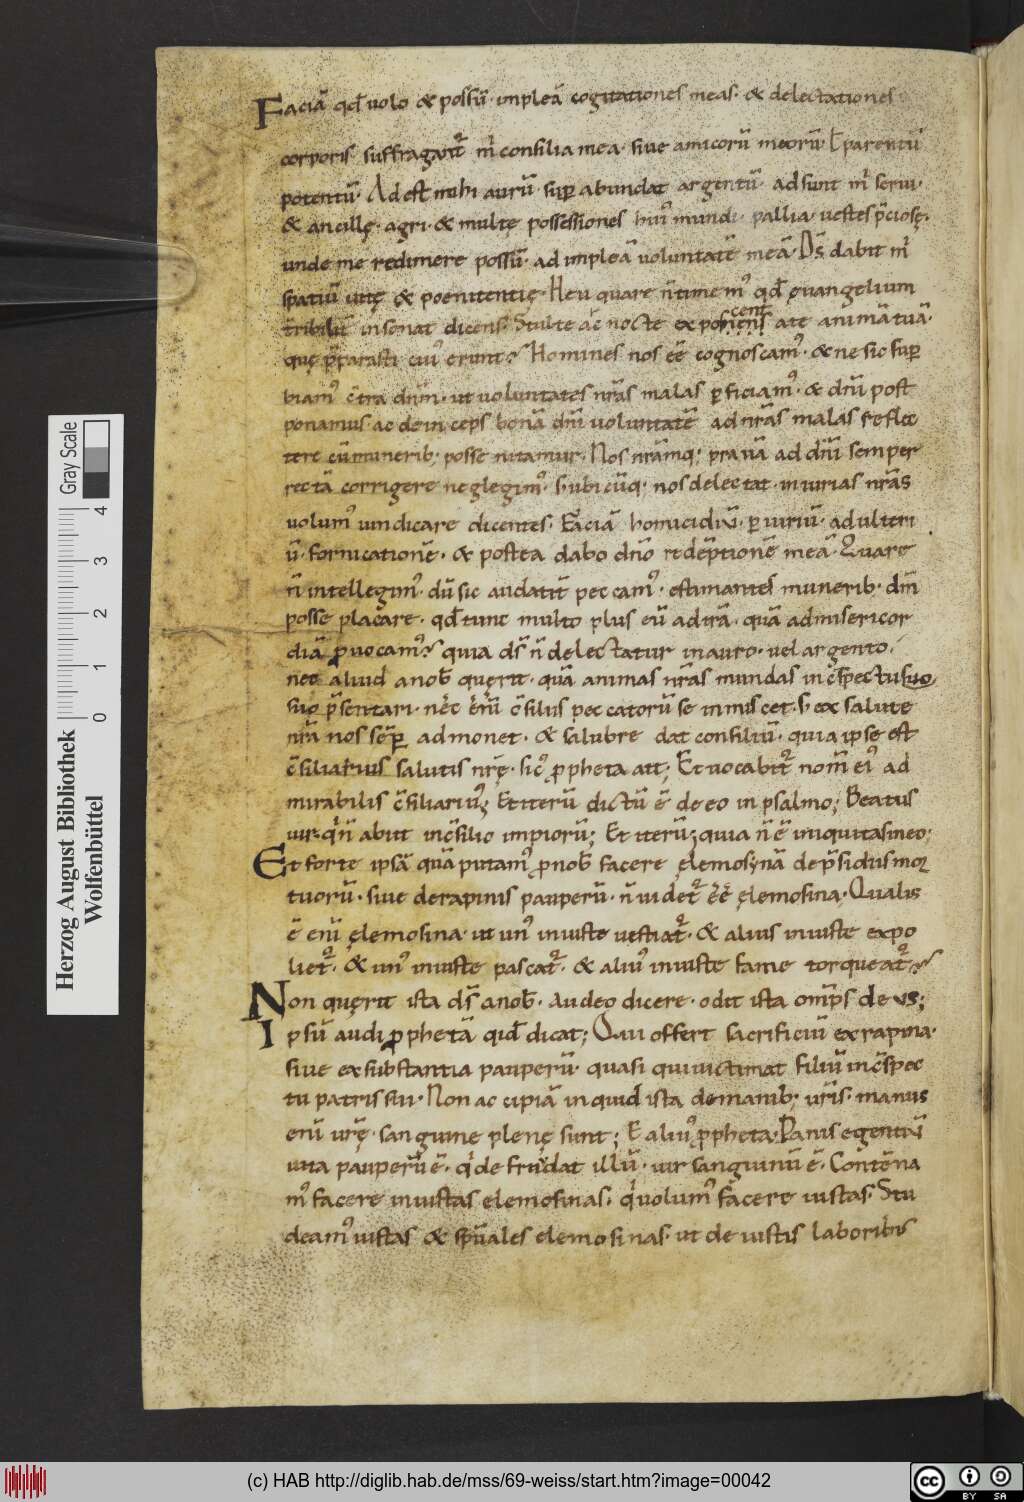 Faciā qđ volo & possū· impleā cogitationes meas· & delectationes
corporis suffragant᷑ m̅ consilia mea· sive amicorū meorū· t parentū
potentū· Adest mihi aurū· suꝑ abundat argentū· adsunt m̅ servi·
& ancillę· agri· & multę possessiones hui᾽ mundi· pallia· vestes p̄ciosę·
unde me redimere possū· ad impleā voluntatē meā· D̅s dabit m̅
spatiū vitę & poenitentię· Heu quare n̄ timem᾽ qđ ęvangelium
terribilit̄ insonat dicens· Stulte ac̄ nocte exposcent a te animā tuā·
quę p̄parasti cui᾽ erunt? Homines nos eē cognoscam᾽· & ne sic suꝑ
biam᾽ c̄tra dn̄m· ut voluntates nr̄as malas ꝑficiam᾽· & dn̄m post
ponamus ac deinceps bonā dn̄i voluntatē ad nr̄as malas reflec
tere cū munerib; posse nitamur· Nos nr̄amq; pravā ad dn̄m semper
rectā corrigere neglegim᾽· s· ubicūq; nos delectat· iniurias nr̄as
volum᾽ vindicare dicentes· Faciā homicidiū· ꝑiuriū· adulteri
ū· fornicationē· & postea dabo dn̄o redēptionē meā· Quare
n̄ intellegim᾽· dū sic audacit̄ peccam᾽· estimantes munerib· dn̄m
posse placare· qđ tunc multo plus eū ad irā· quā ad misericor
diā ꝓvocam᾽? quia d̅s n̄ delectatur in auro· vel argento·
nec aliud a nob̄ quęrit· quā animas nr̄as mundas in c̄spectu suo
suo p̄sentari· nec̄ eni̅ c̄silius peccatorū se inmiscet· s· ex salute
nr̄a nos sēꝑ admonet· & salubre dat consiliū· quia ipse est
c̄siliarius salutis nr̄ę· sic᾽ ꝓpheta ait; Et vocabit᷑ nom̄ ei᾽ ad
mirabilis c̄siliari᾽; Et iterū dictū ē de eo in psalmo; Beatus
vir· q̄ n̄ abiit in c̄silio impiorū; Et iterū; quia n̄ ē iniquitas in eo;
Et forte ipsā quā putam᾽ ꝓ nob̄ facere ęlemosynā de p̄sidiis moꝛ
tuorū· sive de rapinis pauperū· n̄ videt᷑ eē ęlemosina· Qualis
ē enī ęlemosina· ut un᾽ iniuste vestiat᷑· & alius iniuste expo
liet᷑· & un᾽ iniuste pascat᷑· & aliu᾽ iniuste fame torqueat᷑?
Non quęrit ista d̅s a nob̄· audeo dicere· odit ista omp̄s deus;
Ipsū audi ꝓphetā qid dicat; Qui offert sacrificiū ex rapina·
sive ex substantia pauperū· quasi qui victimat filiū in c̄spec
tu patris sui· Non accipiā inquid ista de manib; vr̄is· manus
enī vr̄ę· sanguine plenę sunt; Et aliu᾽ ꝓpheta· Panis egentiū
vita pauperū ē· q̄ defraudat illū· vir sanguinū ē· Contēna
m᾽ facere iniustas elemosinas· q̄ volum᾽ facere iustas· Stu
deam᾽ iustas & sp̄uales elemosinas· ut de iustis laboribus
Herzog August Bibliothek
Wolfenbüttel
Gray Scale
0 1 2 3 4
(c) HAB http://diglib.hab.de/mss/69-weiss/start.htm?image=00042
cc BY SA